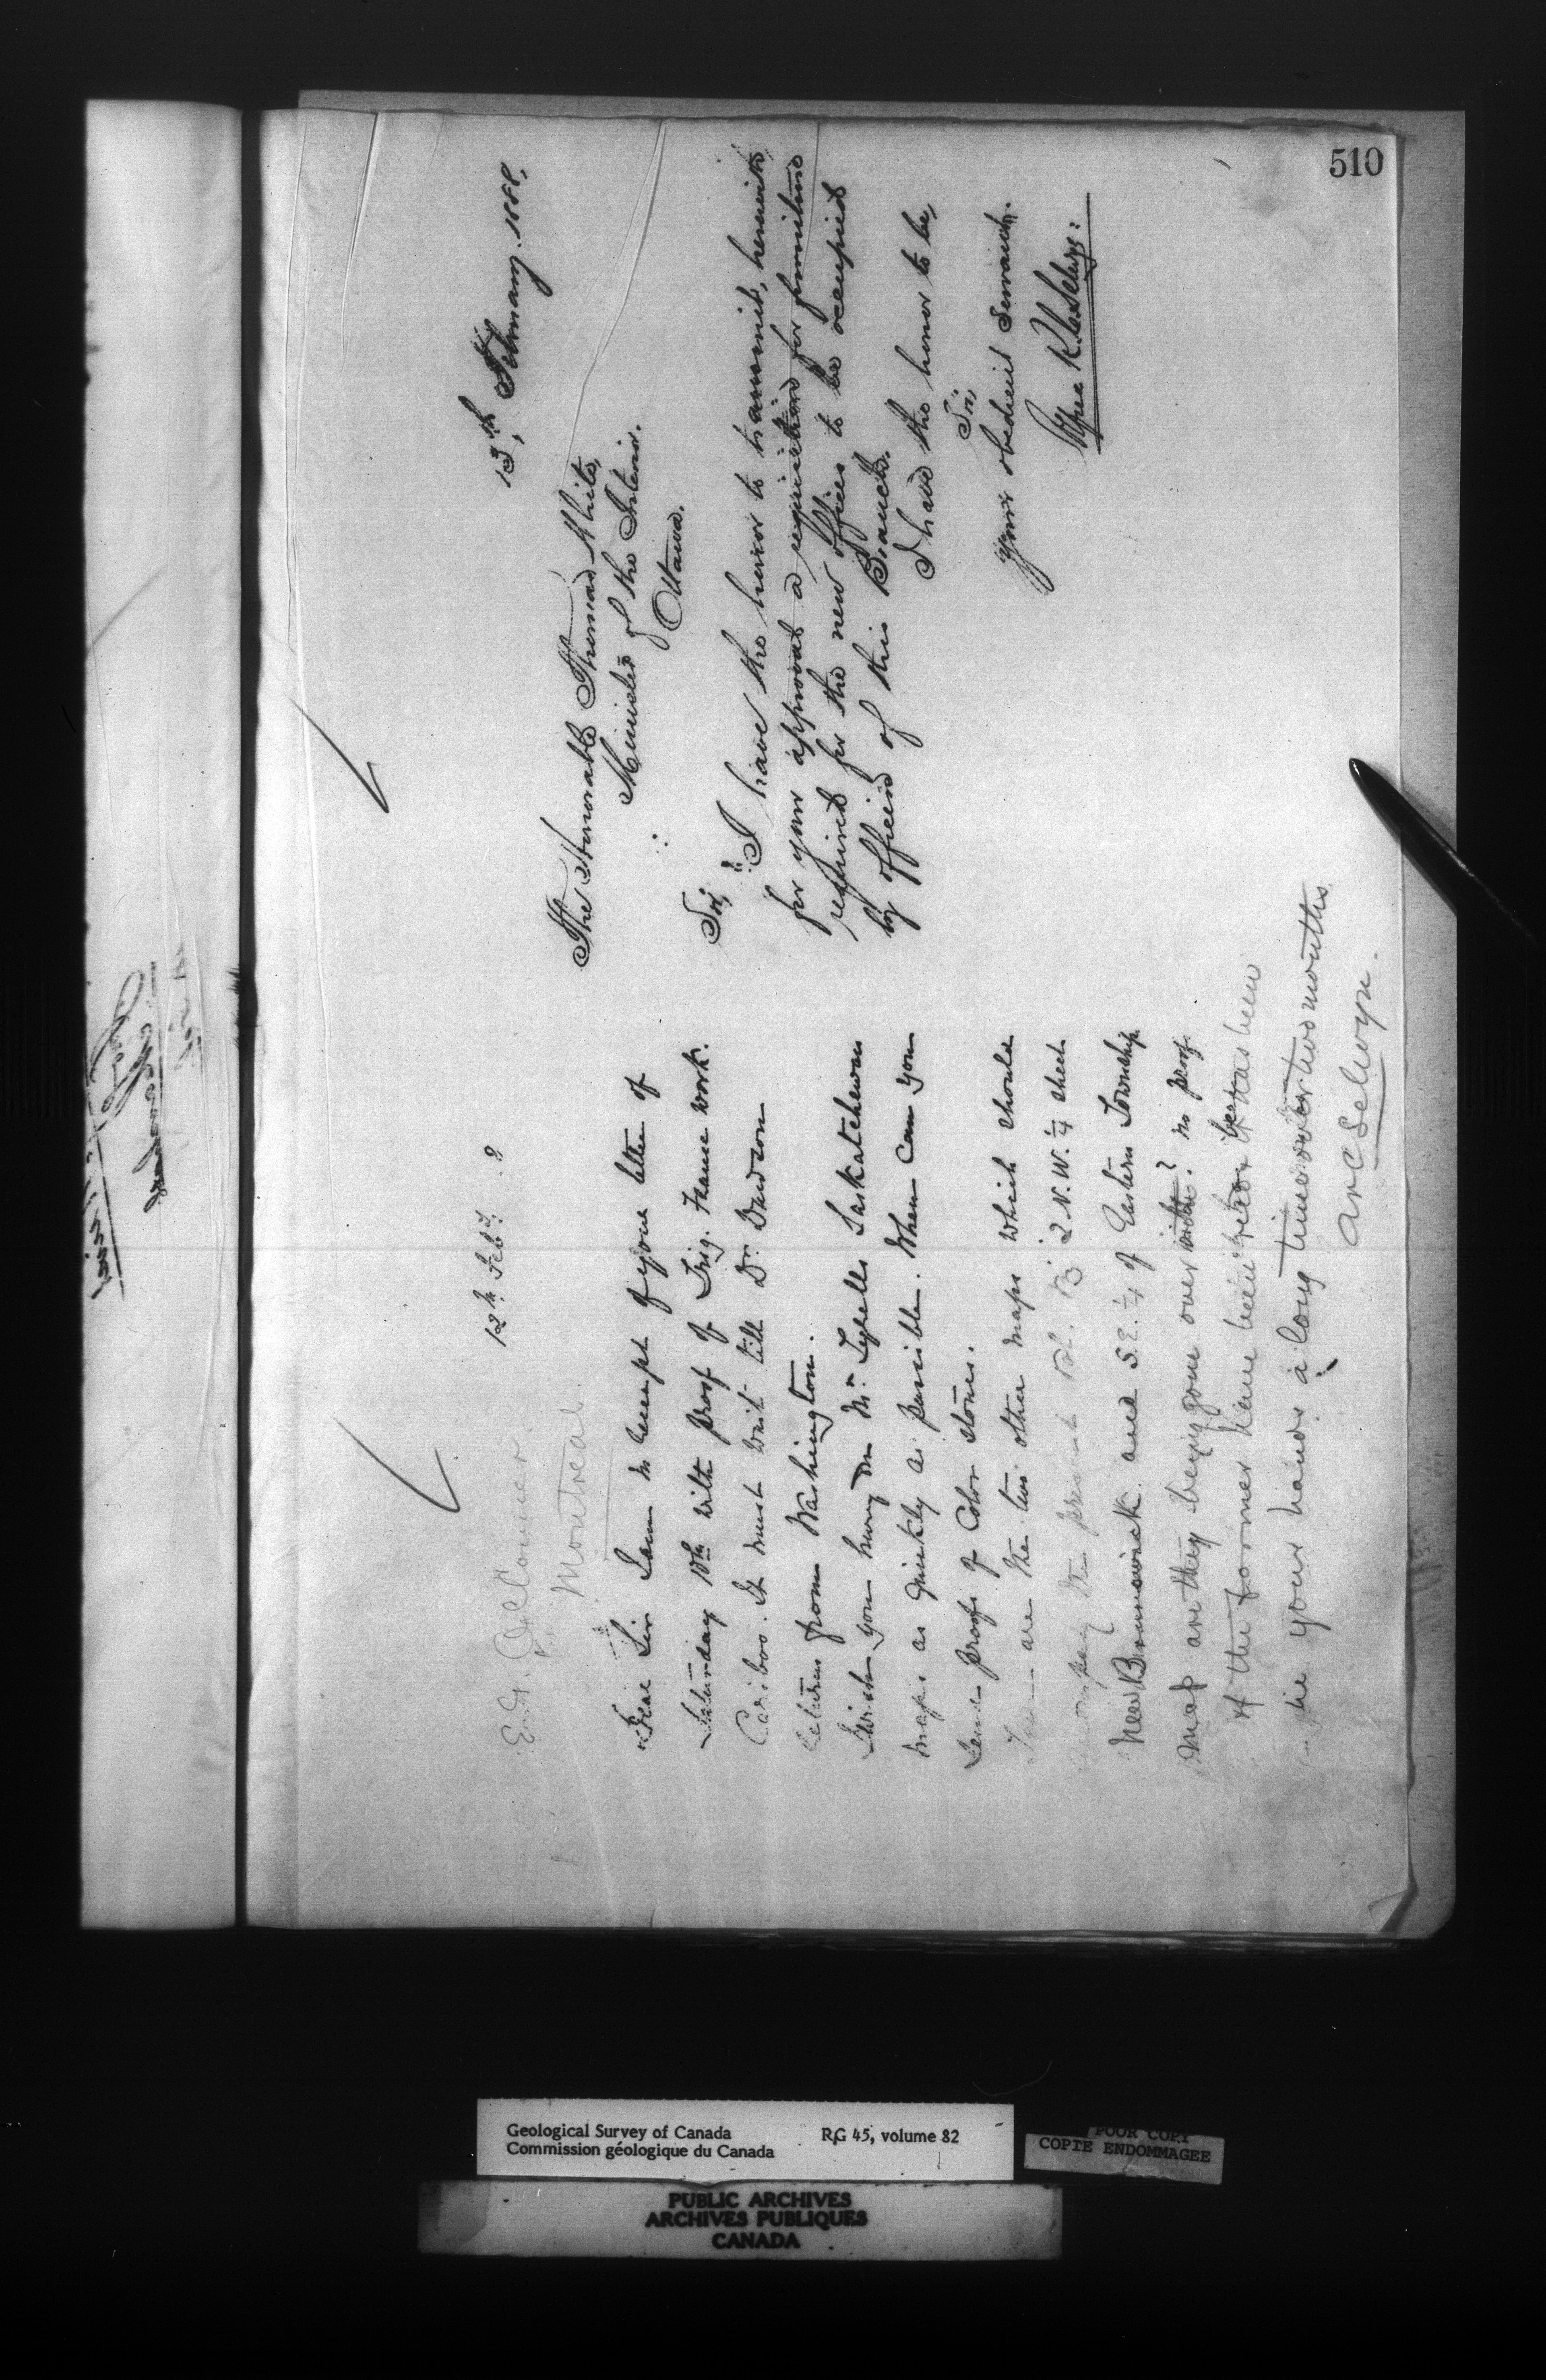 510
12th Feby. 8
E. G. O'Connor.
Montreal.
Dear Sir I am in receipt of your letter of
Saturday 10th with proof of Trig. Frame work.
Cariboo. It must wait till Dr. Dawson
returns from Washington.
I wish you hurry on Mr. Tyrells Saskatchewan
maps as quickly as possible. When can you
send proofs of Color stones.
There are the two other maps which should
accompany the present vol. B 2 N.W. 1/4 sheet
New Brunswick. and S.E. 1/4 of Eastern Township
Map are they being gone over with? no proof
of the former have been it has been
in your hands a long time over two months
ARC Selwyn.
13th, February. 1888.
The Honorable Thomas White,
Minister of the Interior.
Ottawa.
Sir,
I have the honor to transmit, herewith,
for your approval a requisition for furniture
required for the new offices to be occupied
by officers of this Branch.
I have the honor to be,
Sir,
Your obedient Servant.
Alfred R. C. Selwyn:
Geological Survey of Canada RG 45, volume 82
Commission géologique du Canada
POOR COPY
COPIE ENDOMMAGEE
PUBLIC ARCHIVES
ARCHIVES PUBLIQUES
CANADA